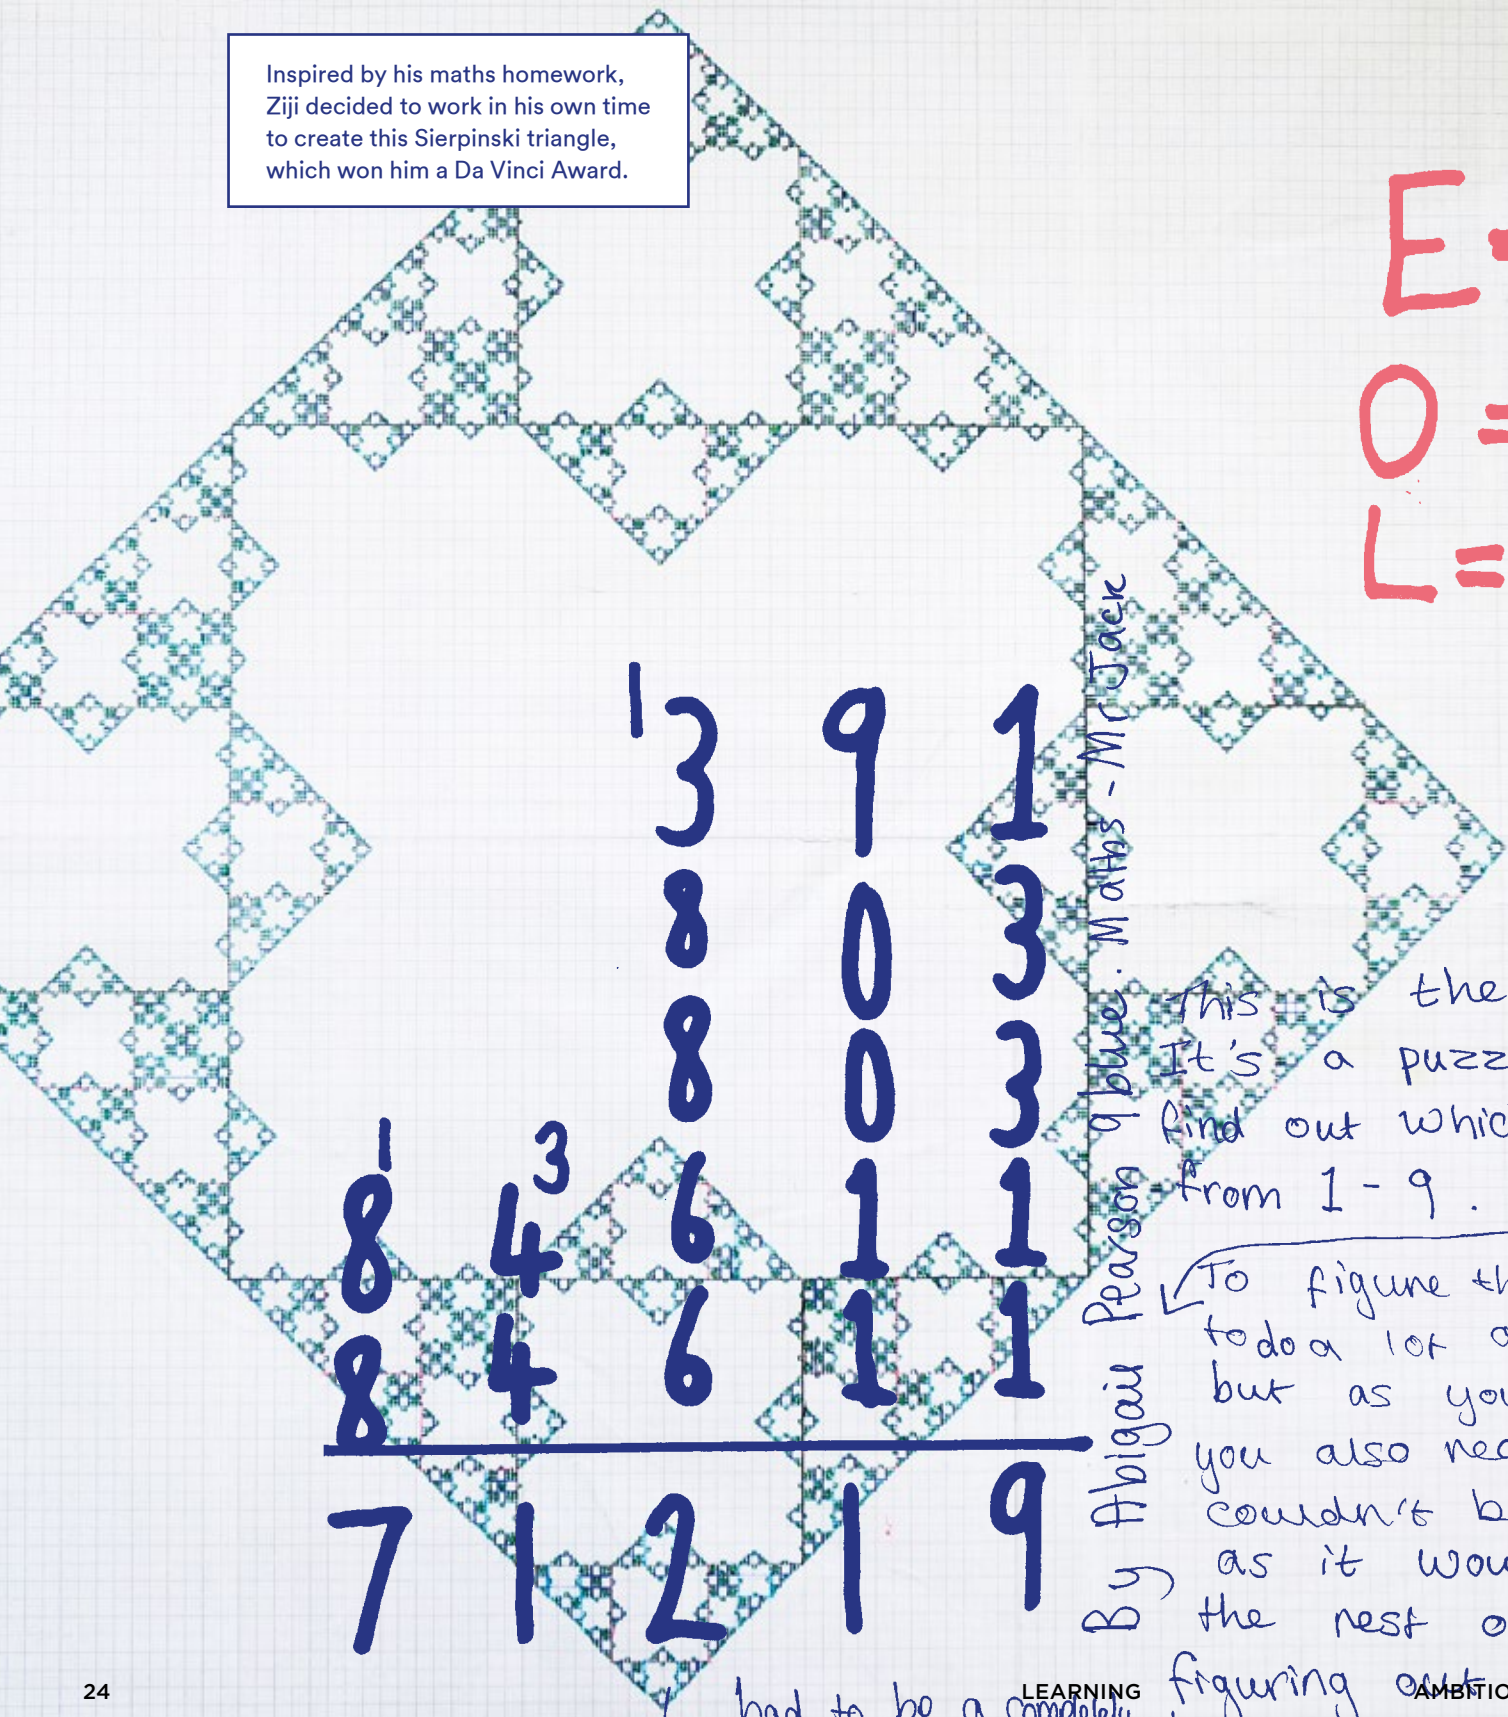 Inspired by his maths homework,
Ziji decided to work in his own time
to create this Sierpinski triangle,
which won him a Da Vinci Award.
E
O =
L =
1
3 9 1
8 0 3
8 0 3
1 3
8 4 6 1 1
8 4 6 1 1
7 1 2 1 9
By Abigail Pearson 9 blue. Maths - Mr Jack
This is the
It's a puzz
find out whic
from 1 - 9 .
To figure th
to do a lot
but as you
you also nee
couldn't b
as it wou
the rest o
figuring out
had to be a completely
24
LEARNING
AMBITIO